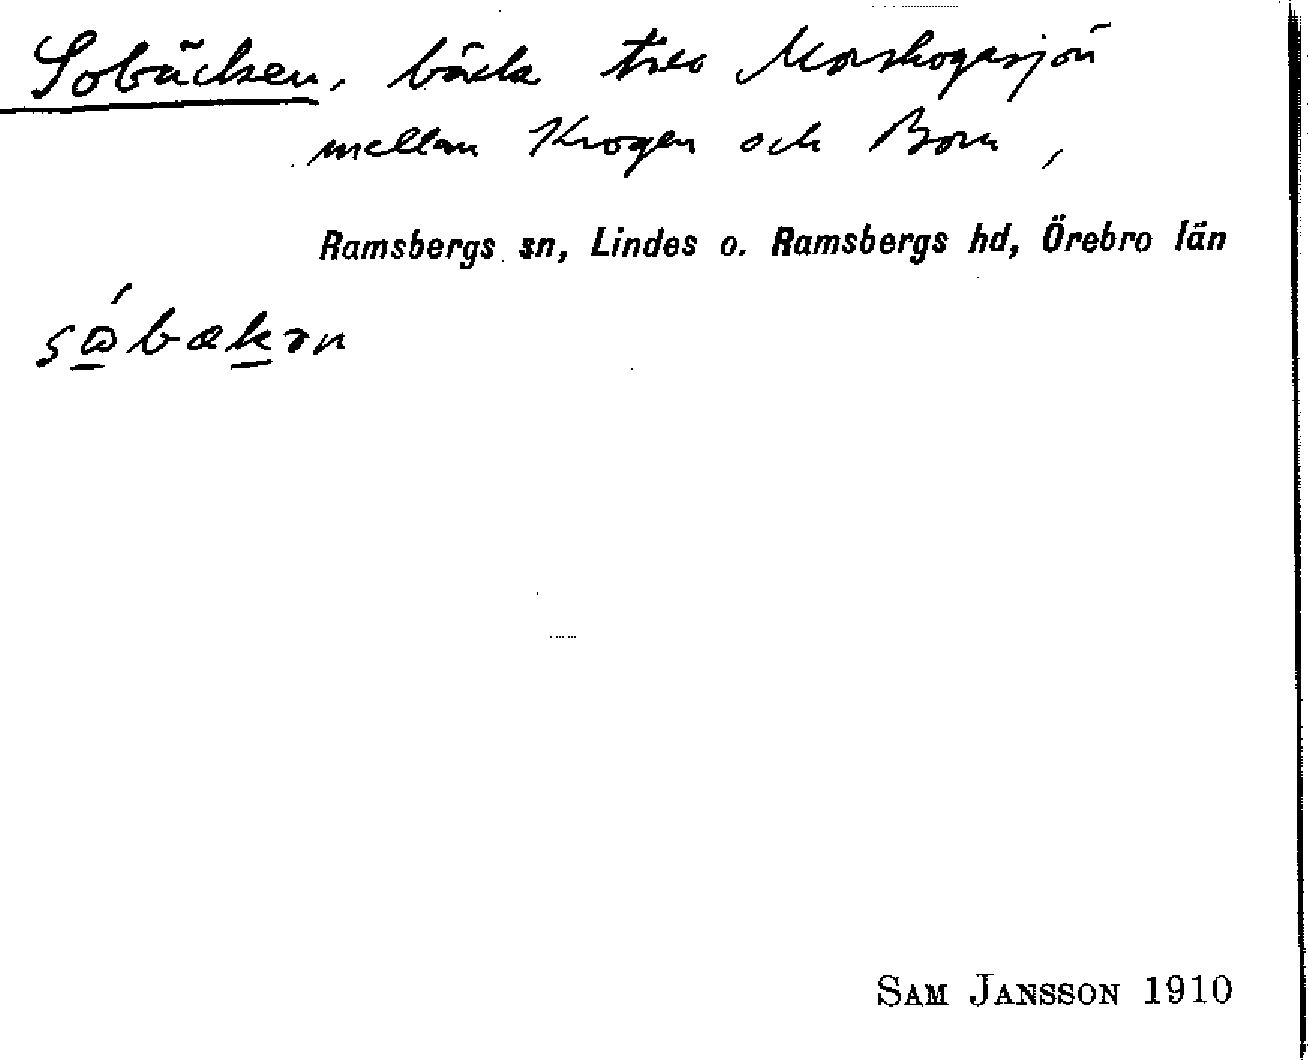 Sobäcken, bäck till Morskogasjön
mellan Krogen och Born,
Ramsbergs sn, Lindes o. Ramsbergs hd, Örebro län
SAM JANSSON 1910